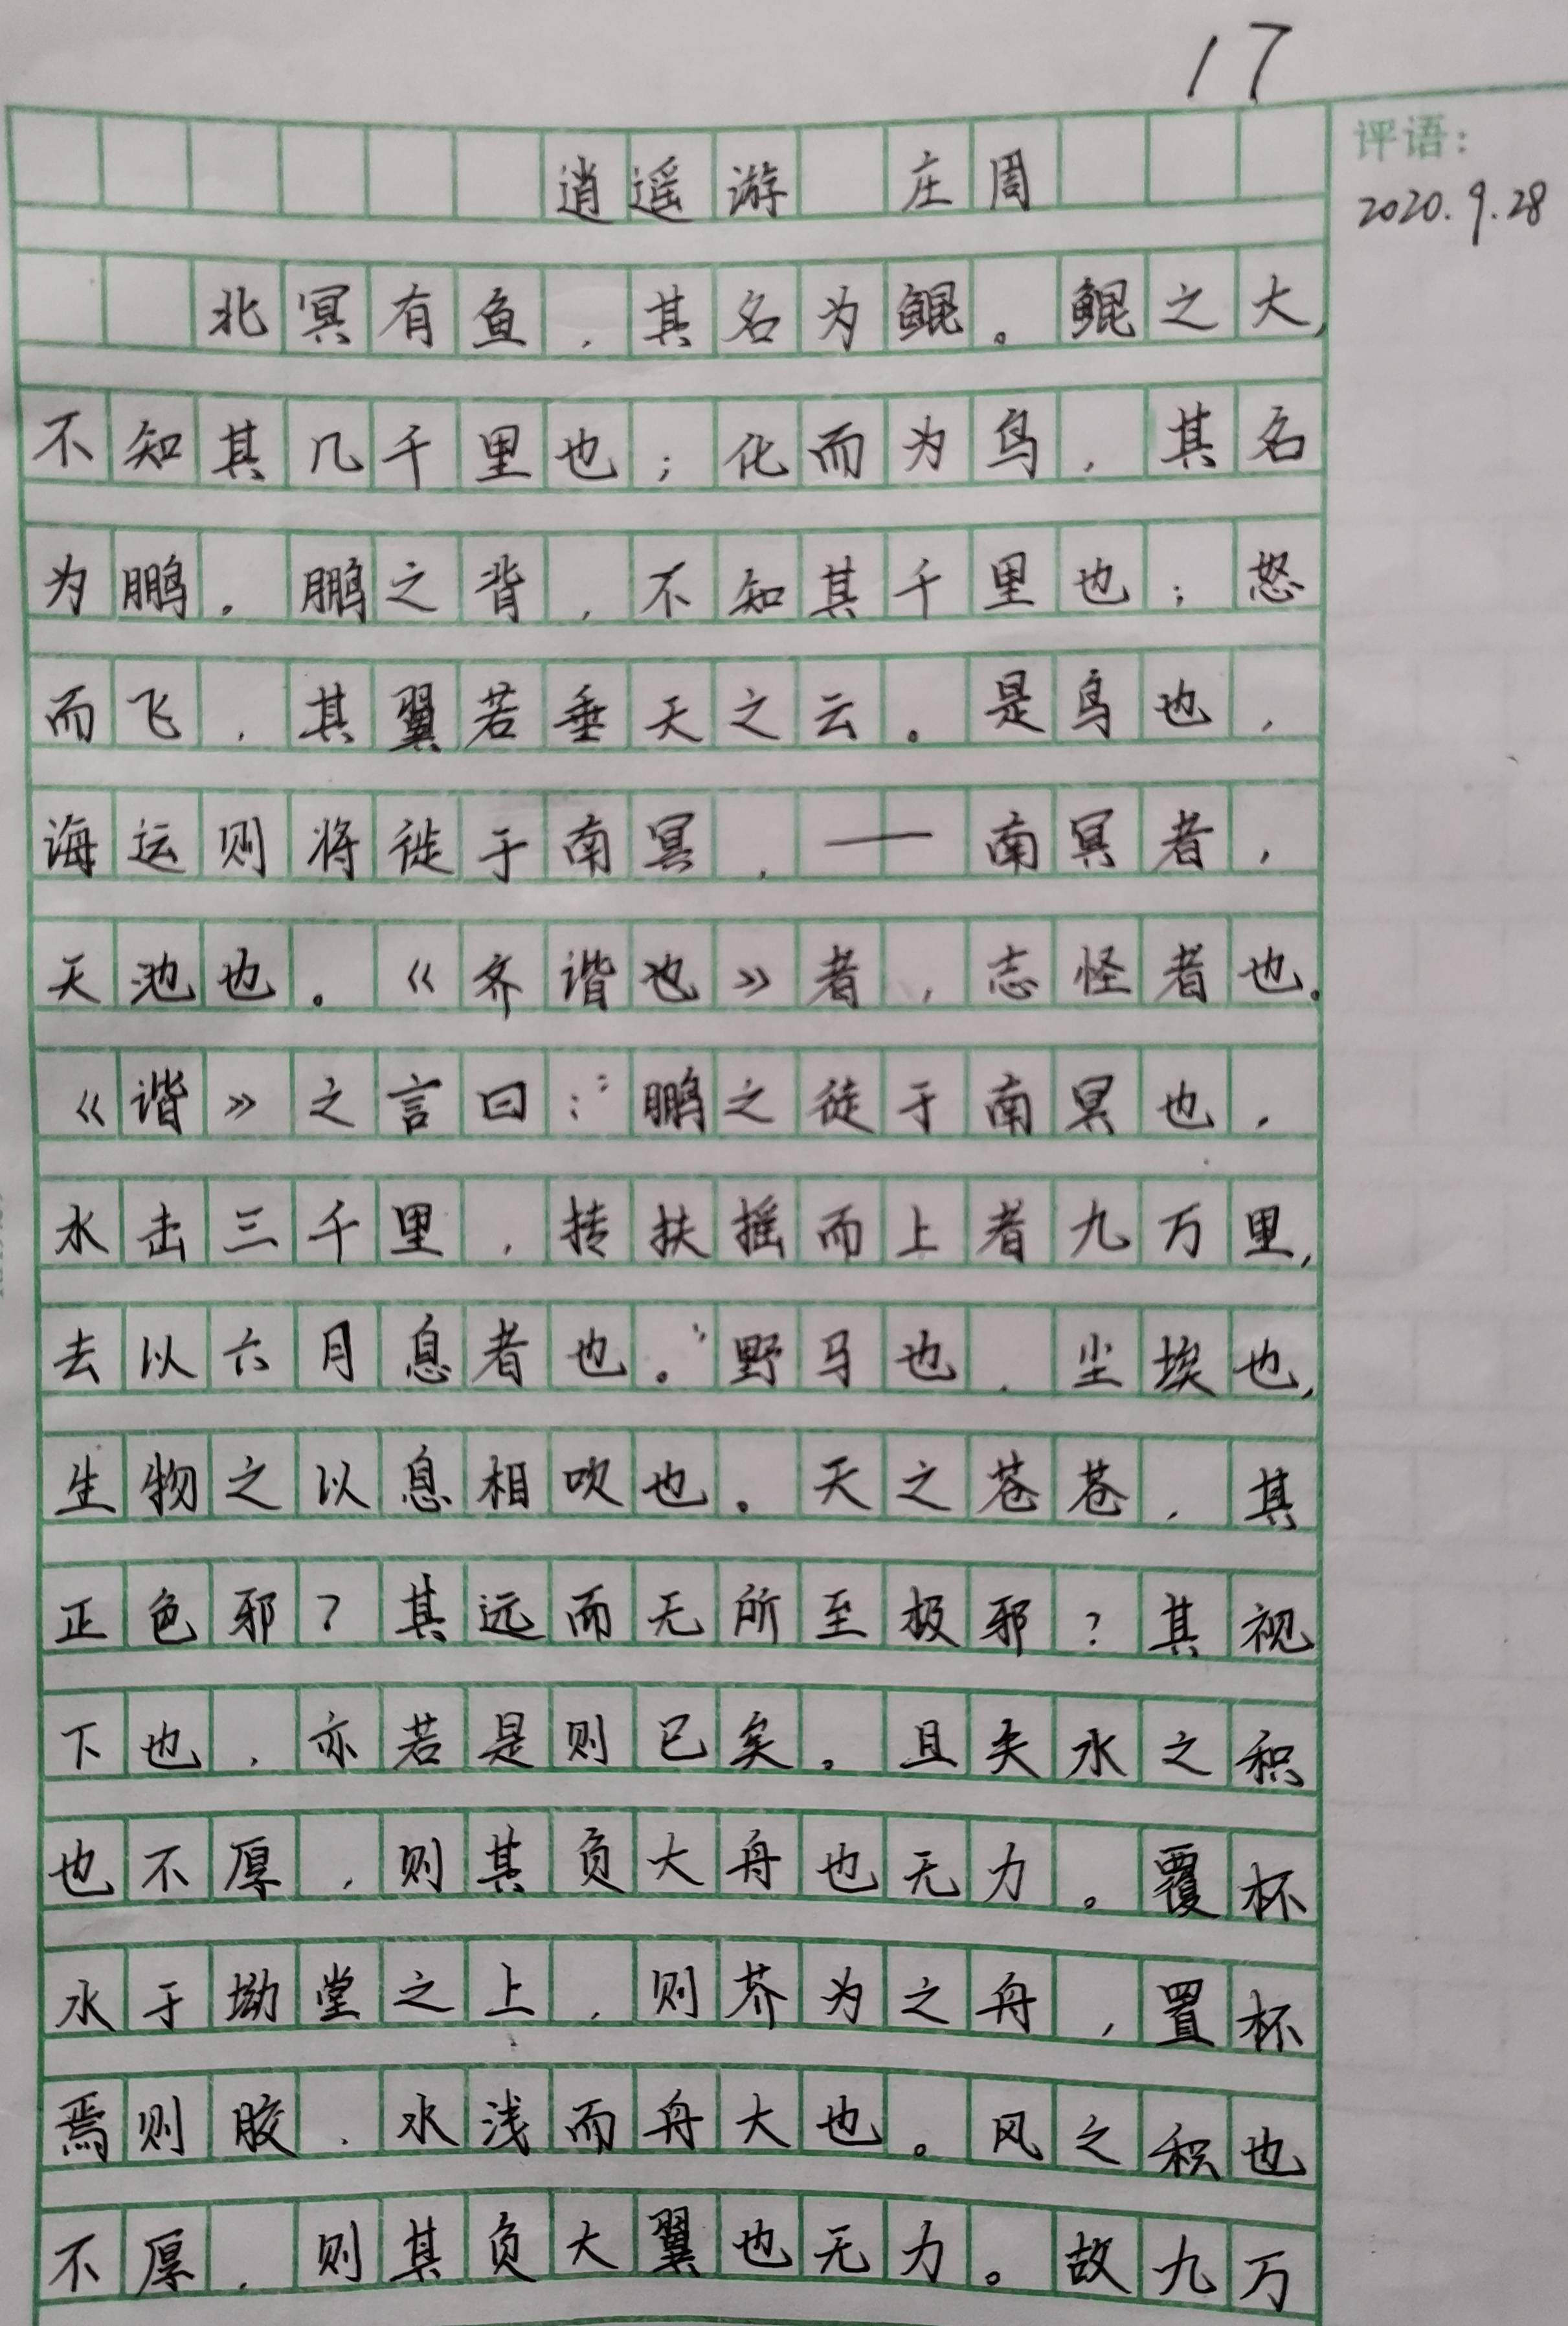 17
评语：
2020.9.28
逍遥游 庄周
北冥有鱼，其名为鲲。鲲之大，
不知其几千里也；化而为鸟，其名
为鹏。鹏之背，不知其千里也；怒
而飞，其翼若垂天之云。是鸟也，
海运则将徙于南冥，——南冥者，
天池也。《齐谐也》者，志怪者也。
《谐》之言曰：“鹏之徒于南冥也，
水击三千里，抟扶摇而上者九万里，
去以六月息者也。”野马也，尘埃也，
生物之以息相吹也。天之苍苍，其
正色邪？其远而无所至极邪？其视
下也，亦若是则已矣。且夫水之积
也不厚，则其负大舟也无力。覆杯
水于坳堂之上，则芥为之舟，置杯
焉则胶，水浅而舟大也。风之积也
不厚，则其负大翼也无力。故九万